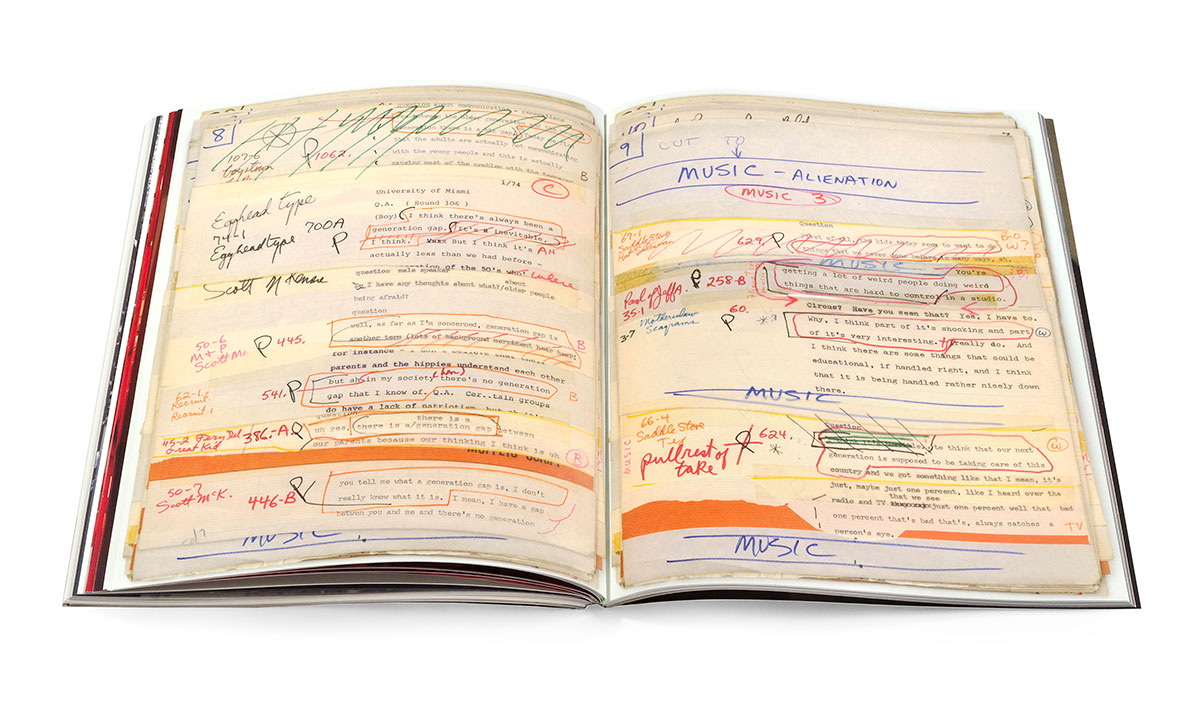 8
question about communicating generations
then there is a
that the adults are actually not communicating
with the young people and this is actually
causing most of the problem with the teenagers
107-6
1062.
B
1/74
C
University of Miami
Q.A. ( Sound 106 )
(Boy) I think there's always been a
generation gap. It's a inevitable,
I think. But I think it's
actually less than we had before -
of the 50's who
Egghead type
74-1
Egghead type
700A
P
question male speaker
I have any thoughts about what/older people
about
being afraid?
question
Scott McKenzie
well, as far as I'm concerned, generation gap is
another term (lots of background merriment
for instance - I don't believe that
parents and the hippies understand each other
50-6
M + P
Scott Mc
P 445.
B
but ah in my society there's no generation
gap that I know of. Q.A. Cer..tain groups
do have a lack of patriotism,
62-1
Recruit.
Recruit 1
541. P
B
question
there is a
uh yes. there is a/generation gap between
our parents because our thinking I think is uh
45-2
Great Kid
386.-A P
B
you tell me what a generation gap is. I don't
really know what it is. I mean. I have a gap
betwen you and me and there's no generation
50-7
Scott McK.
446-B
MUSIC
9
CUT TO
MUSIC - ALIENATION
MUSIC 3
Question
of all, the kids today seem to want to do
things that we never done before in many ways, ah.
67-1
Saddle Store
629. P
MUSIC
You're
getting a lot of weird people doing weird
things that are hard to control in a studio.
Road of Jaffa
35-1
P 258-B
B
Circus? Have you seen that? Yes, I have to.
Why, I think part of it's shocking and part
of it's very interesting. I really do. And
I think there are some things that could be
educational, if handled right, and I think
that it is being handled rather nicely down
there.
3-7
Mother-in-law
Seagrams
60.
P
W
MUSIC
66-4
Saddle Store
pull rest of
take
P 624.
MUSIC
Question
to think that our next
generation is supposed to be taking care of this
country and we got something like that I mean, it's
just, maybe just one percent, like I heard over the
that we see
radio and TV just one percent well that bad
one percent that's bad that's, always catches a
person's eye.
W
TV
MUSIC